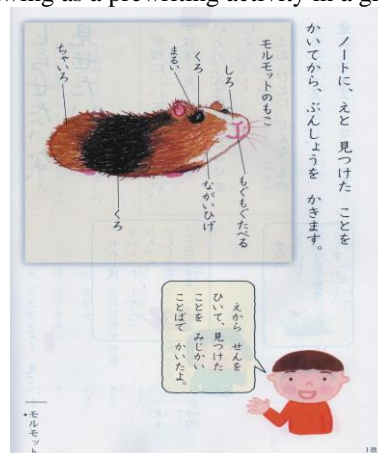 wing as a prewriting activity in a g
ノートに、えと 見つけた ことを
かいてから、ぶんしょうを かきます。
モルモットのもこ
しろ
くろ
まるい
ちゃいろ
もぐもぐたべる
ながいひげ
くろ
えから せんを
ひいて、見つけた
ことを みじかい
ことばで かいたよ。
モルモット